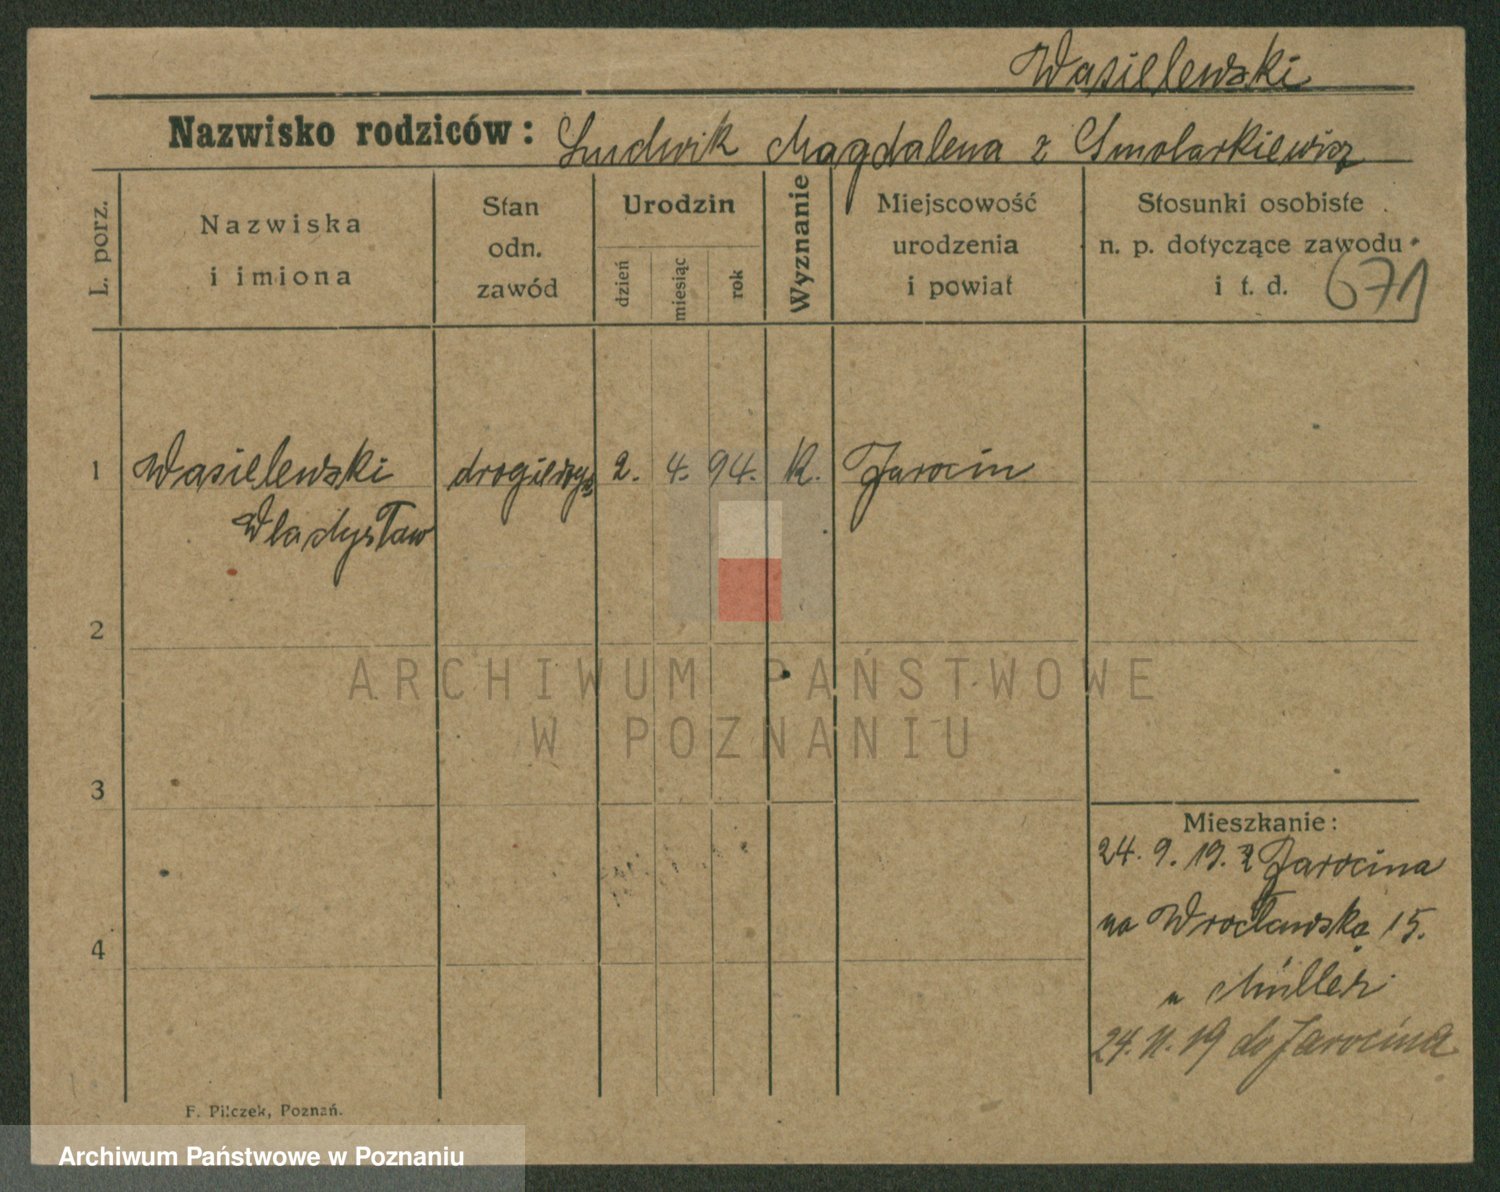 Wasielewski
Nazwisko rodziców: Ludwik Magdalena z Smolarkiewicz
L. porz.
Nazwiska
i imiona
Stan
odn.
zawód
Urodzin
dzień
miesiąc
rok
Wyznanie
Miejscowość
urodzenia
i powiat
Stosunki osobiste
n. p. dotyczące zawodu
i t. d.
671
1 Wasielewski 2. 4. 94. K. Jarocin
Władysław
2
3
4
Mieszkanie:
24. 9. 19. z Jarocina
na Wrocławska 15.
u Müller
24. 11. 19 do Jarocina
F. Pilczek, Poznań.
ARCHIWUM PAŃSTWOWE
W POZNANIU
Archiwum Państwowe w Poznaniu